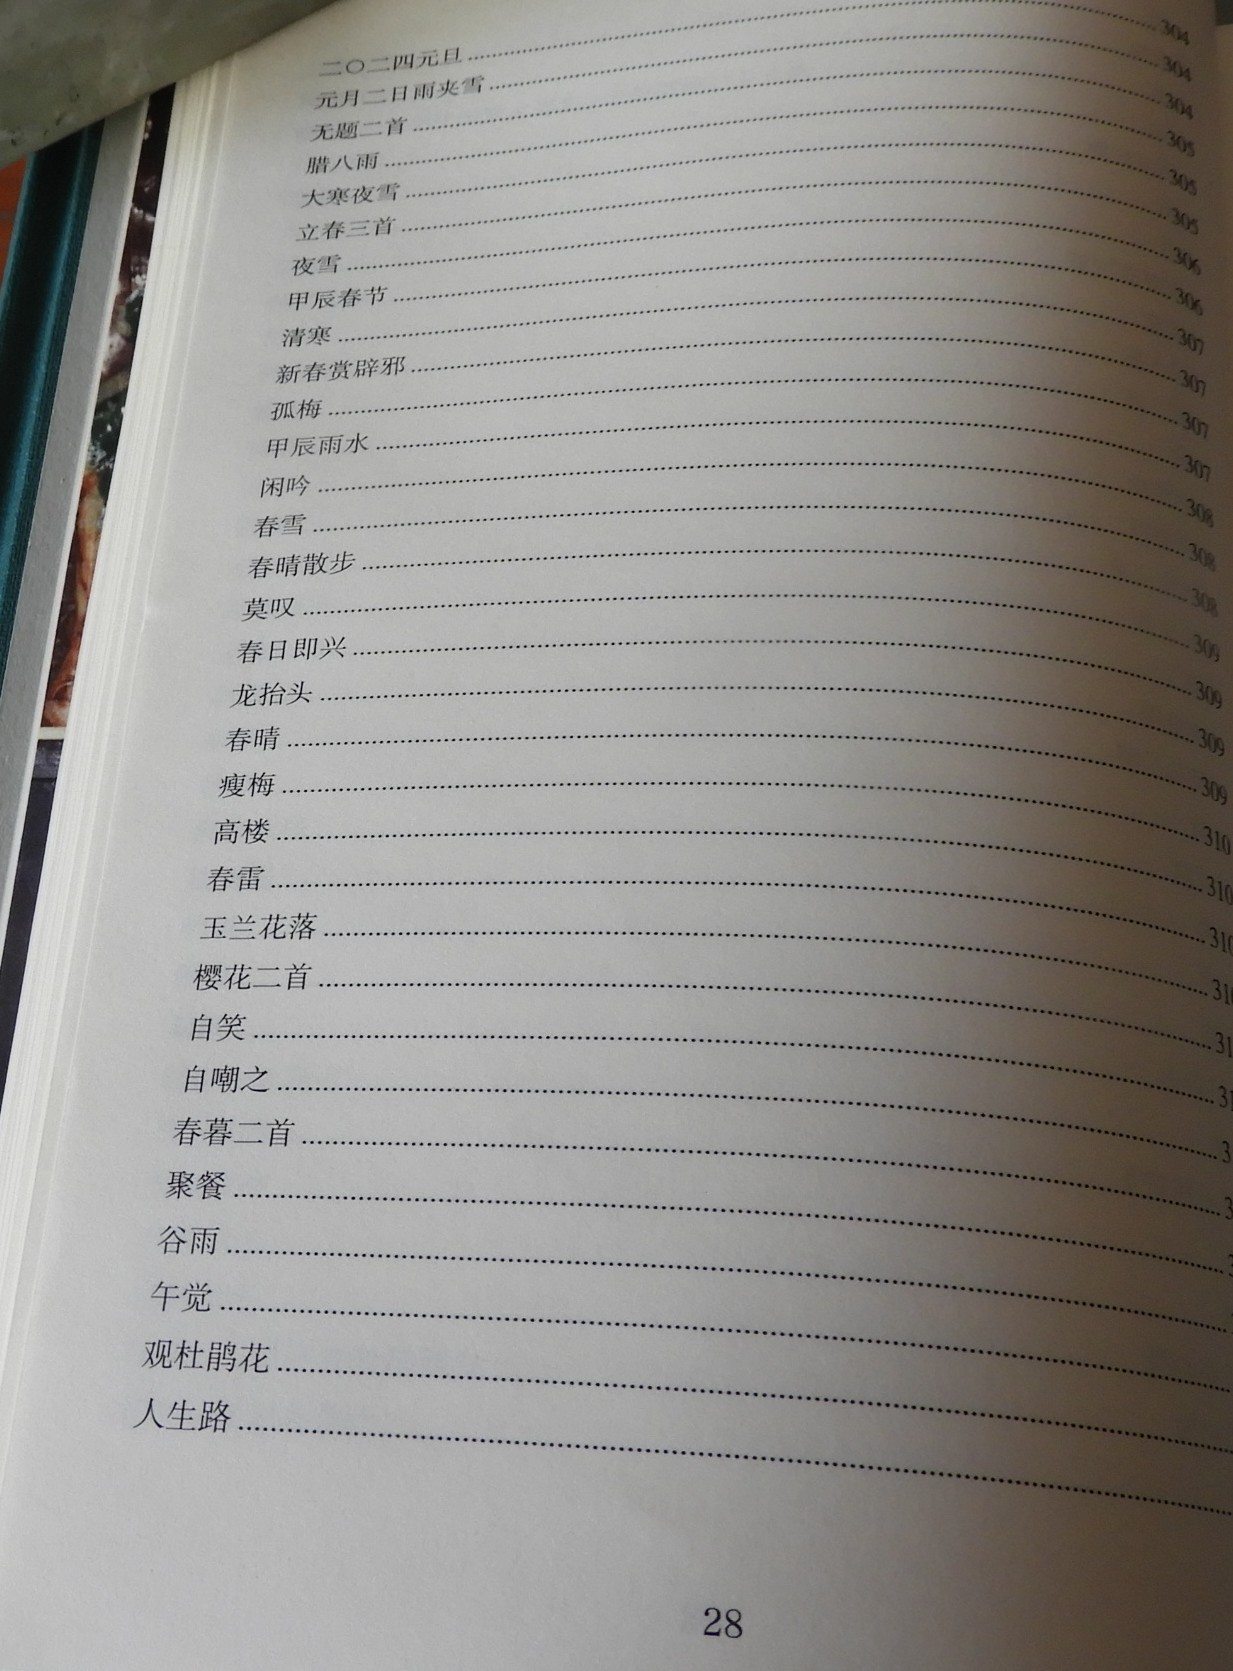 二〇二四元旦 304
元月二日雨夹雪 304
无题二首 304
腊八雨 305
大寒夜雪 305
立春三首 305
夜雪 306
甲辰春节 306
清寒 307
新春赏辟邪 307
孤梅 307
甲辰雨水 307
闲吟 308
春雪 308
春晴散步 308
莫叹 309
春日即兴 309
龙抬头 309
春晴 309
瘦梅 310
高楼 310
春雷 310
玉兰花落 310
樱花二首
自笑
自嘲之
春暮二首
聚餐
谷雨
午觉
观杜鹃花
人生路
28